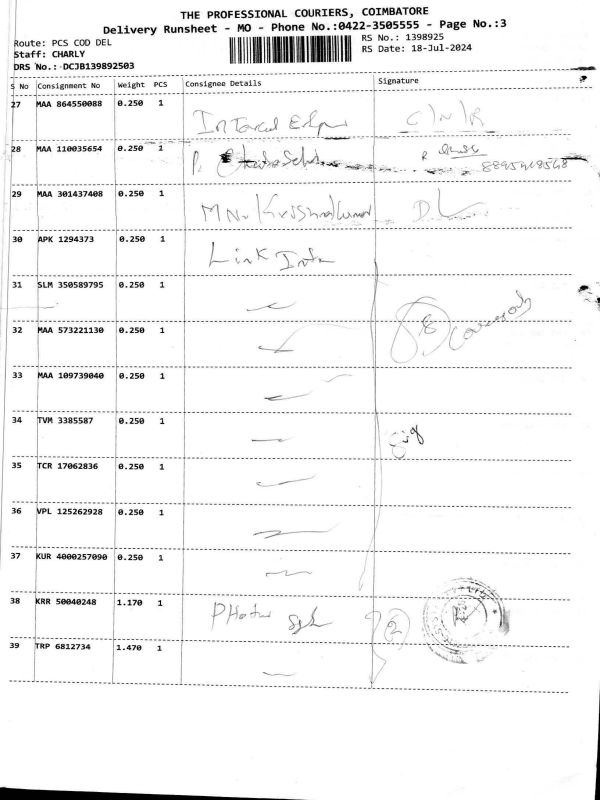 THE PROFESSIONAL COURIERS, COIMBATORE
Delivery Runsheet - MO - Phone No.:0422-3505555 - Page No.:3
Route: PCS COD DEL
Staff: CHARLY
DRS No.: DCJB139892503
RS No.: 1398925
RS Date: 18-Jul-2024
S No Consignment No Weight PCS Consignee Details Signature
27 MAA 864550088 0.250 1 C/N/R
28 MAA 110035654 0.250 1 P.
29 MAA 301437408 0.250 1 Krishnakumar D L
30 APK 1294373 0.250 1 Link Inta
31 SLM 350589795 0.250 1
32 MAA 573221130 0.250 1 8
33 MAA 109739040 0.250 1
34 TVM 3385587 0.250 1
35 TCR 17062836 0.250 1
36 VPL 125262928 0.250 1
37 KUR 4000257090 0.250 1
38 KRR 50040248 1.170 1 2
39 TRP 6812734 1.470 1